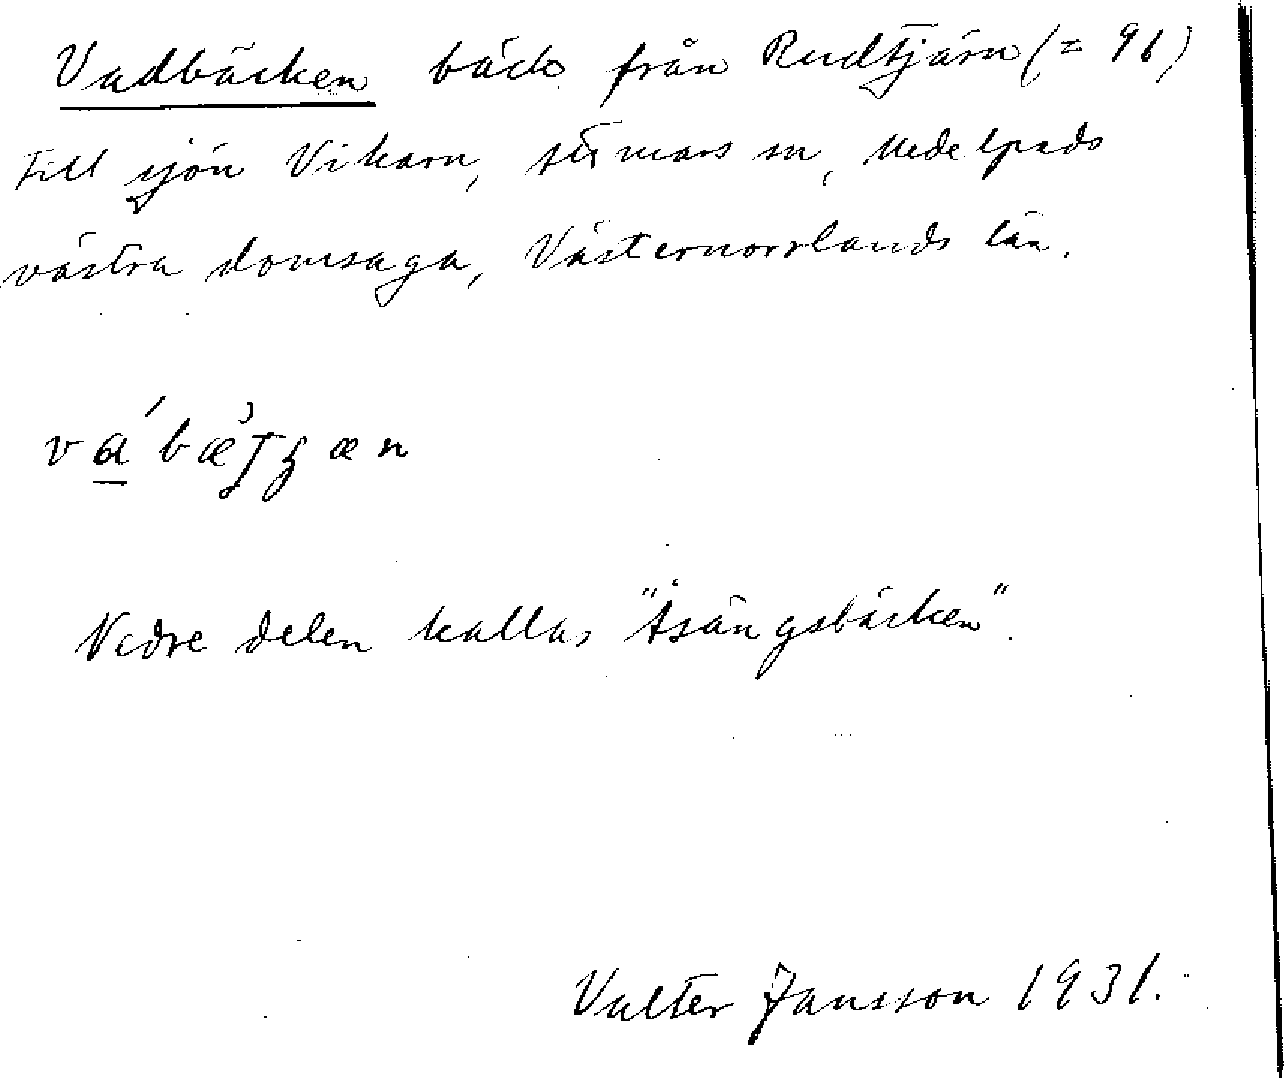 Vadbäcken bäck från Rudtjärn (= 96)
till sjön Vikarn, Stömars sn, Medelpads
västra domsaga, Västernorrlands län.
Nedre delen kallas "Åsängsbäcken".
Valter Jansson 1931.